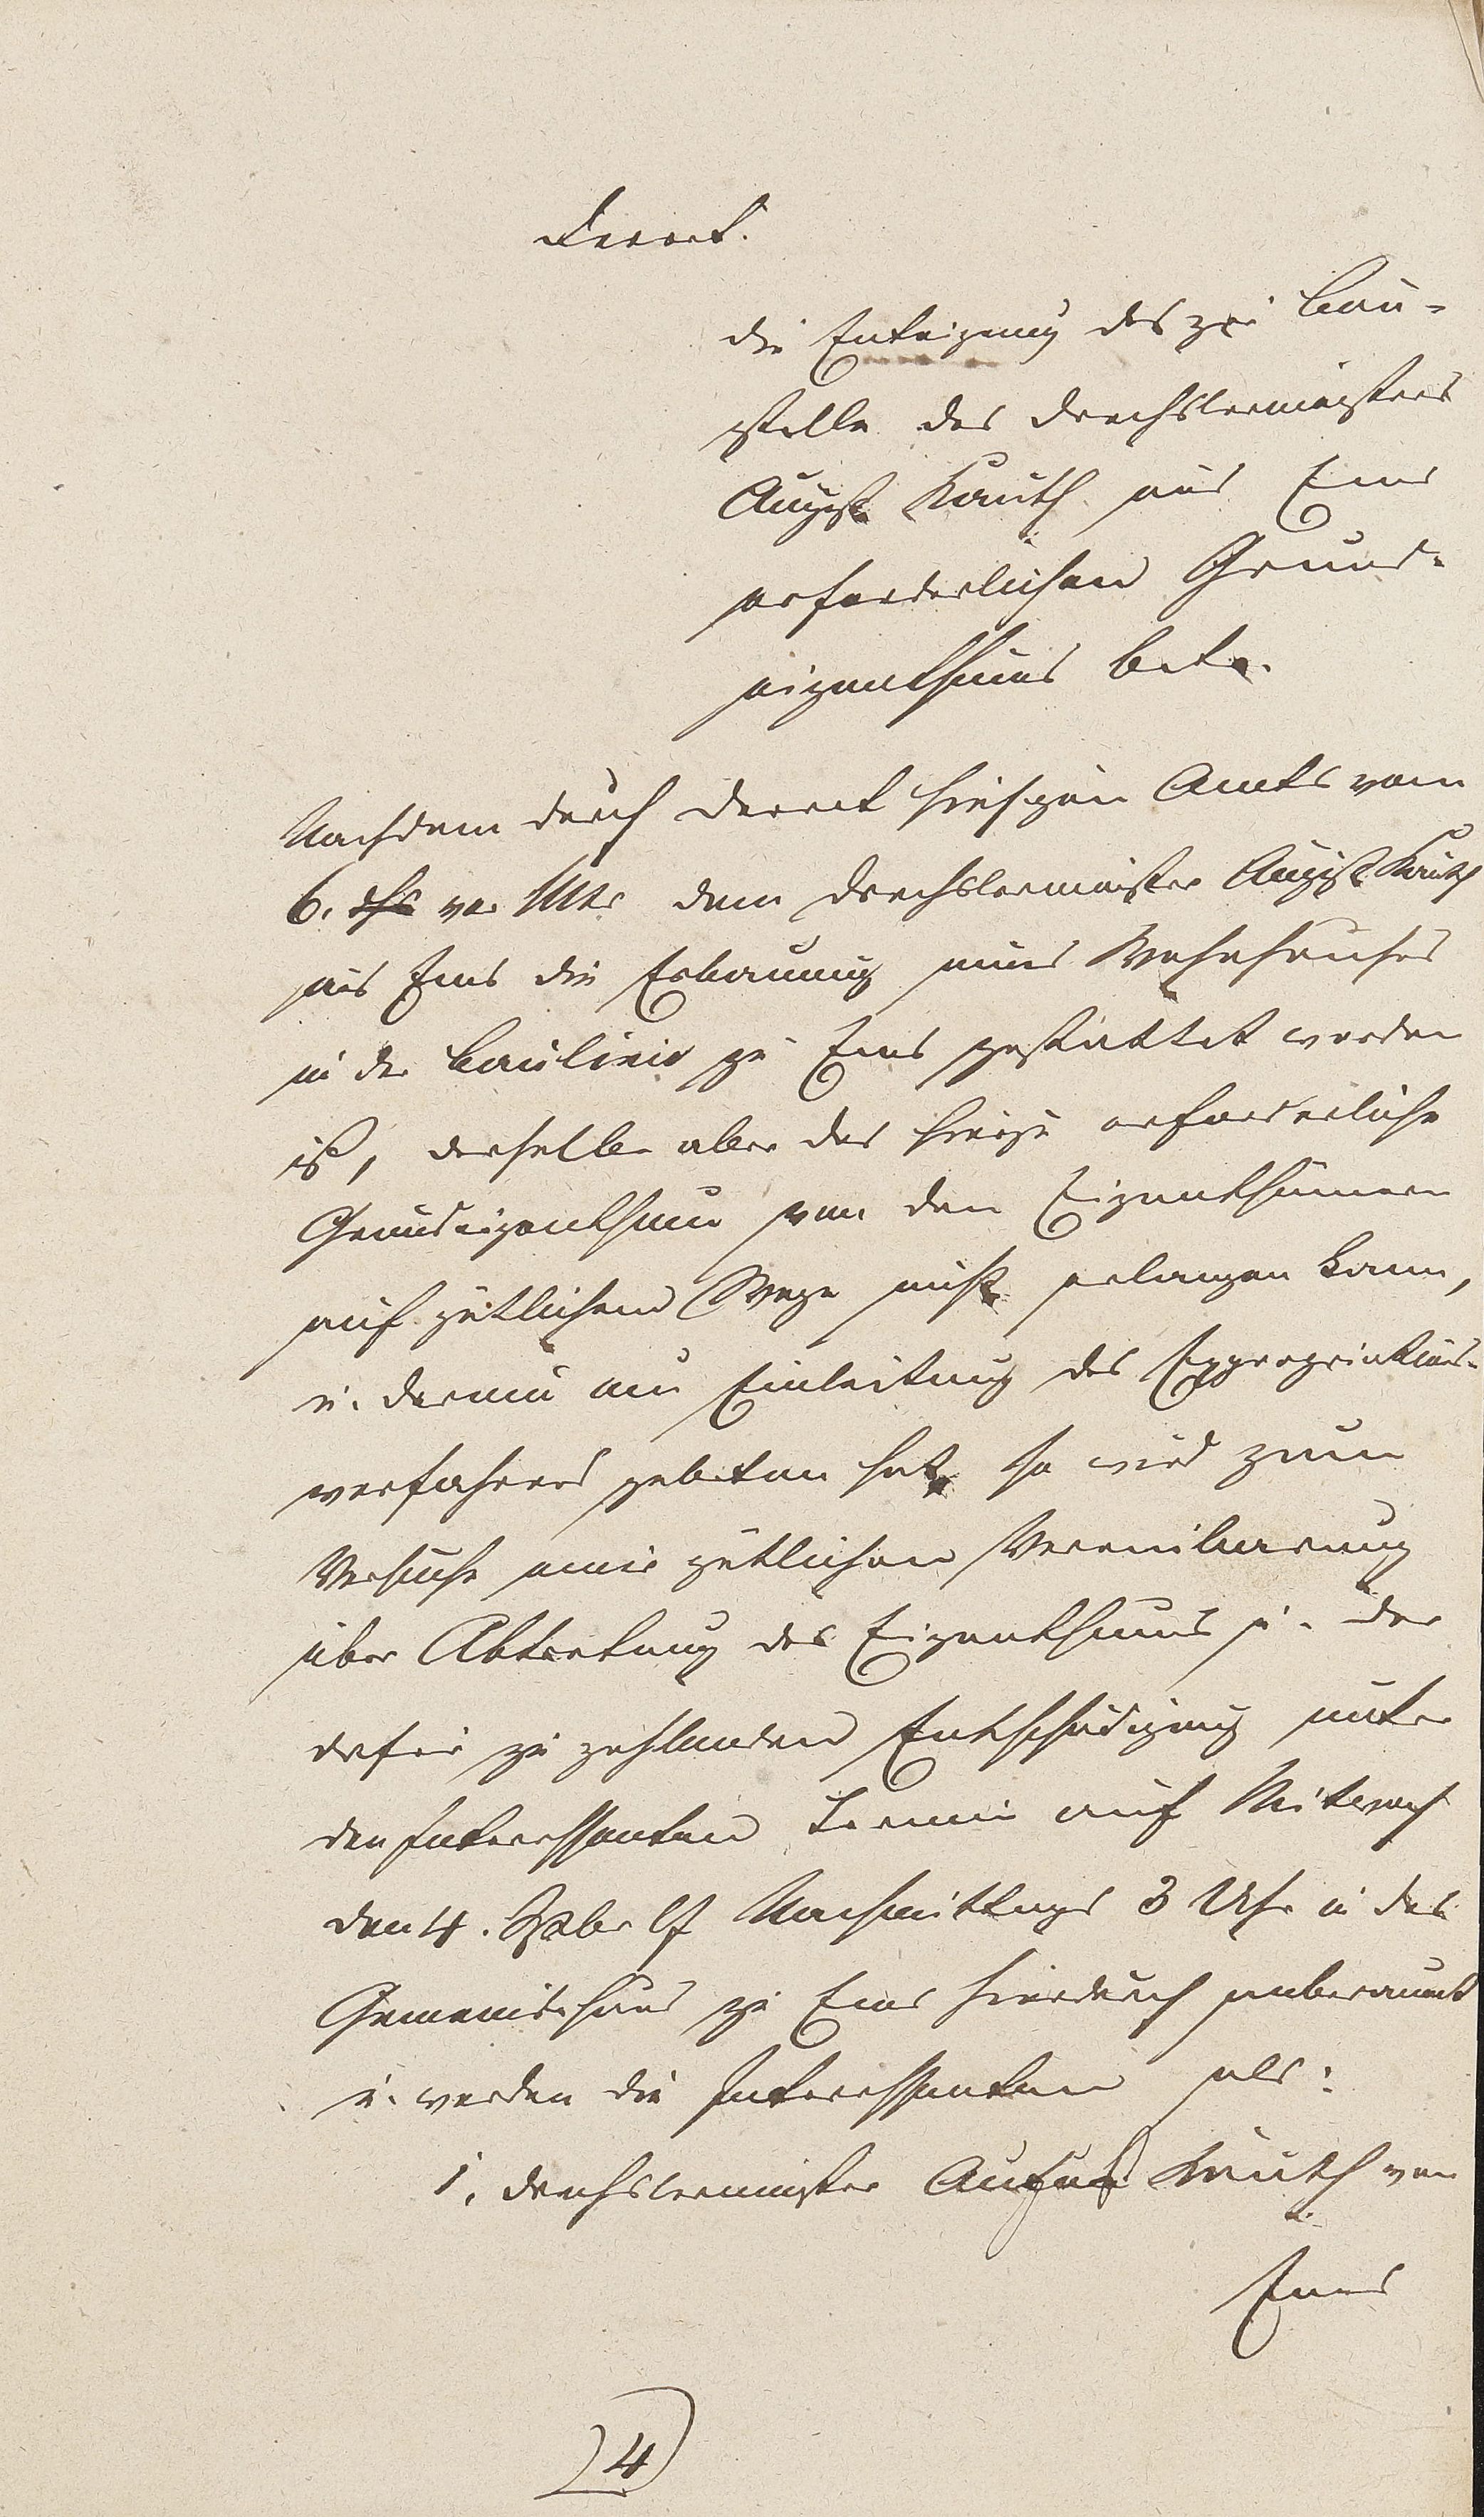 Decret.
die Enteignung des zur Bau-
stelle des Drechslermeisters
August Kauth aus Ems
erforderlichen Grund-
eigenthums betr.
Nachdem durch Decret hiesigen Amts vom
6. ds vor Mts dem Drechslermeister August Kauth
aus Ems die Erbauung eines Wohnhauses
in der Baulinie zu Ems gestattet worden
ist, derselbe aber das hierzu erforderliche
Grundeigenthum von den Eigenthümern
auf gütlichem Wege nicht erlangen kann,
u. darum um Einleitung des Expropriations-
verfahrens gebeten hat, so wird zum
Versuche einer gütlichen Vereinbarung
über Abtretung des Eigenthums u. der
dafür zu zahlenden Entschädigung unter
den Interessenten Termin auf Mittwoch
den 4. lf Nachmittags 3 Uhr in das
Gemeindehaus zu Ems hierdurch anberaumt
u. werden die Interessenten als:
1, Drechslermeister August Kauth von
Ems
4